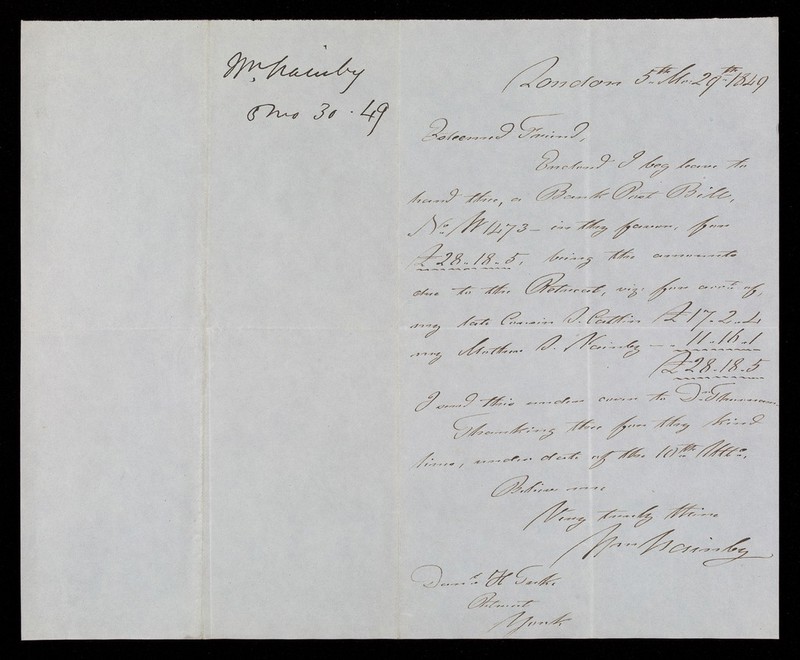 Wm. Nainby
5 mo 30 - 49
London 5th Mo. 29th 1849
Esteemed Friend,
Enclosed I beg leave to
hand thee, a Bank Post Bill,
No. W 1473 - in thy favor, for
£28-18-5, being the amounts
due to the Retreat, viz. for acct. of,
my late Cousin S. Catlin £17-2-4
my Mother S. Nainby - - 11-16-1
£28-18-5
I send this under cover to Dr. Thurnam.
Thanking thee for thy kind
lines, under date of the 10th Ulto.
Believe me
Very truly thine
Wm Nainby
H Tuke.
Retreat
York